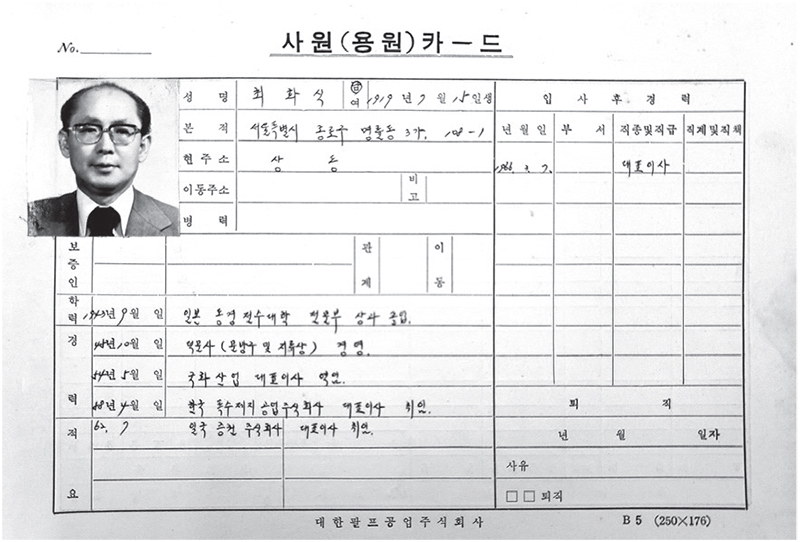 No.
사원(용원)카―드
성명 최화식 男 여 1919년 7월 15일생 입사후경력
본적 서울특별시 종로구 명륜동 3가 108-1 년월일 부서 직종및직급 직계및직책
현주소 상동 1966. 3. 7. 대표이사
이동주소 비고
병력
보증인 관계 이동
학력 1943년 9월 일 일본 동경 전수대학 상과 졸업.
경력 45년 10월 일 (문방구 및 지류상) 경영.
54년 5월 일 국화산업 대표이사 역임.
58년 4월 일 한국 특수제지공업주식회사 대표이사 취임. 퇴직
62. 7 일국 증권 주식회사 대표이사 취임. 년 월 일자
적요 사유
□□퇴직
대한펄프공업주식회사 B5 (250×176)